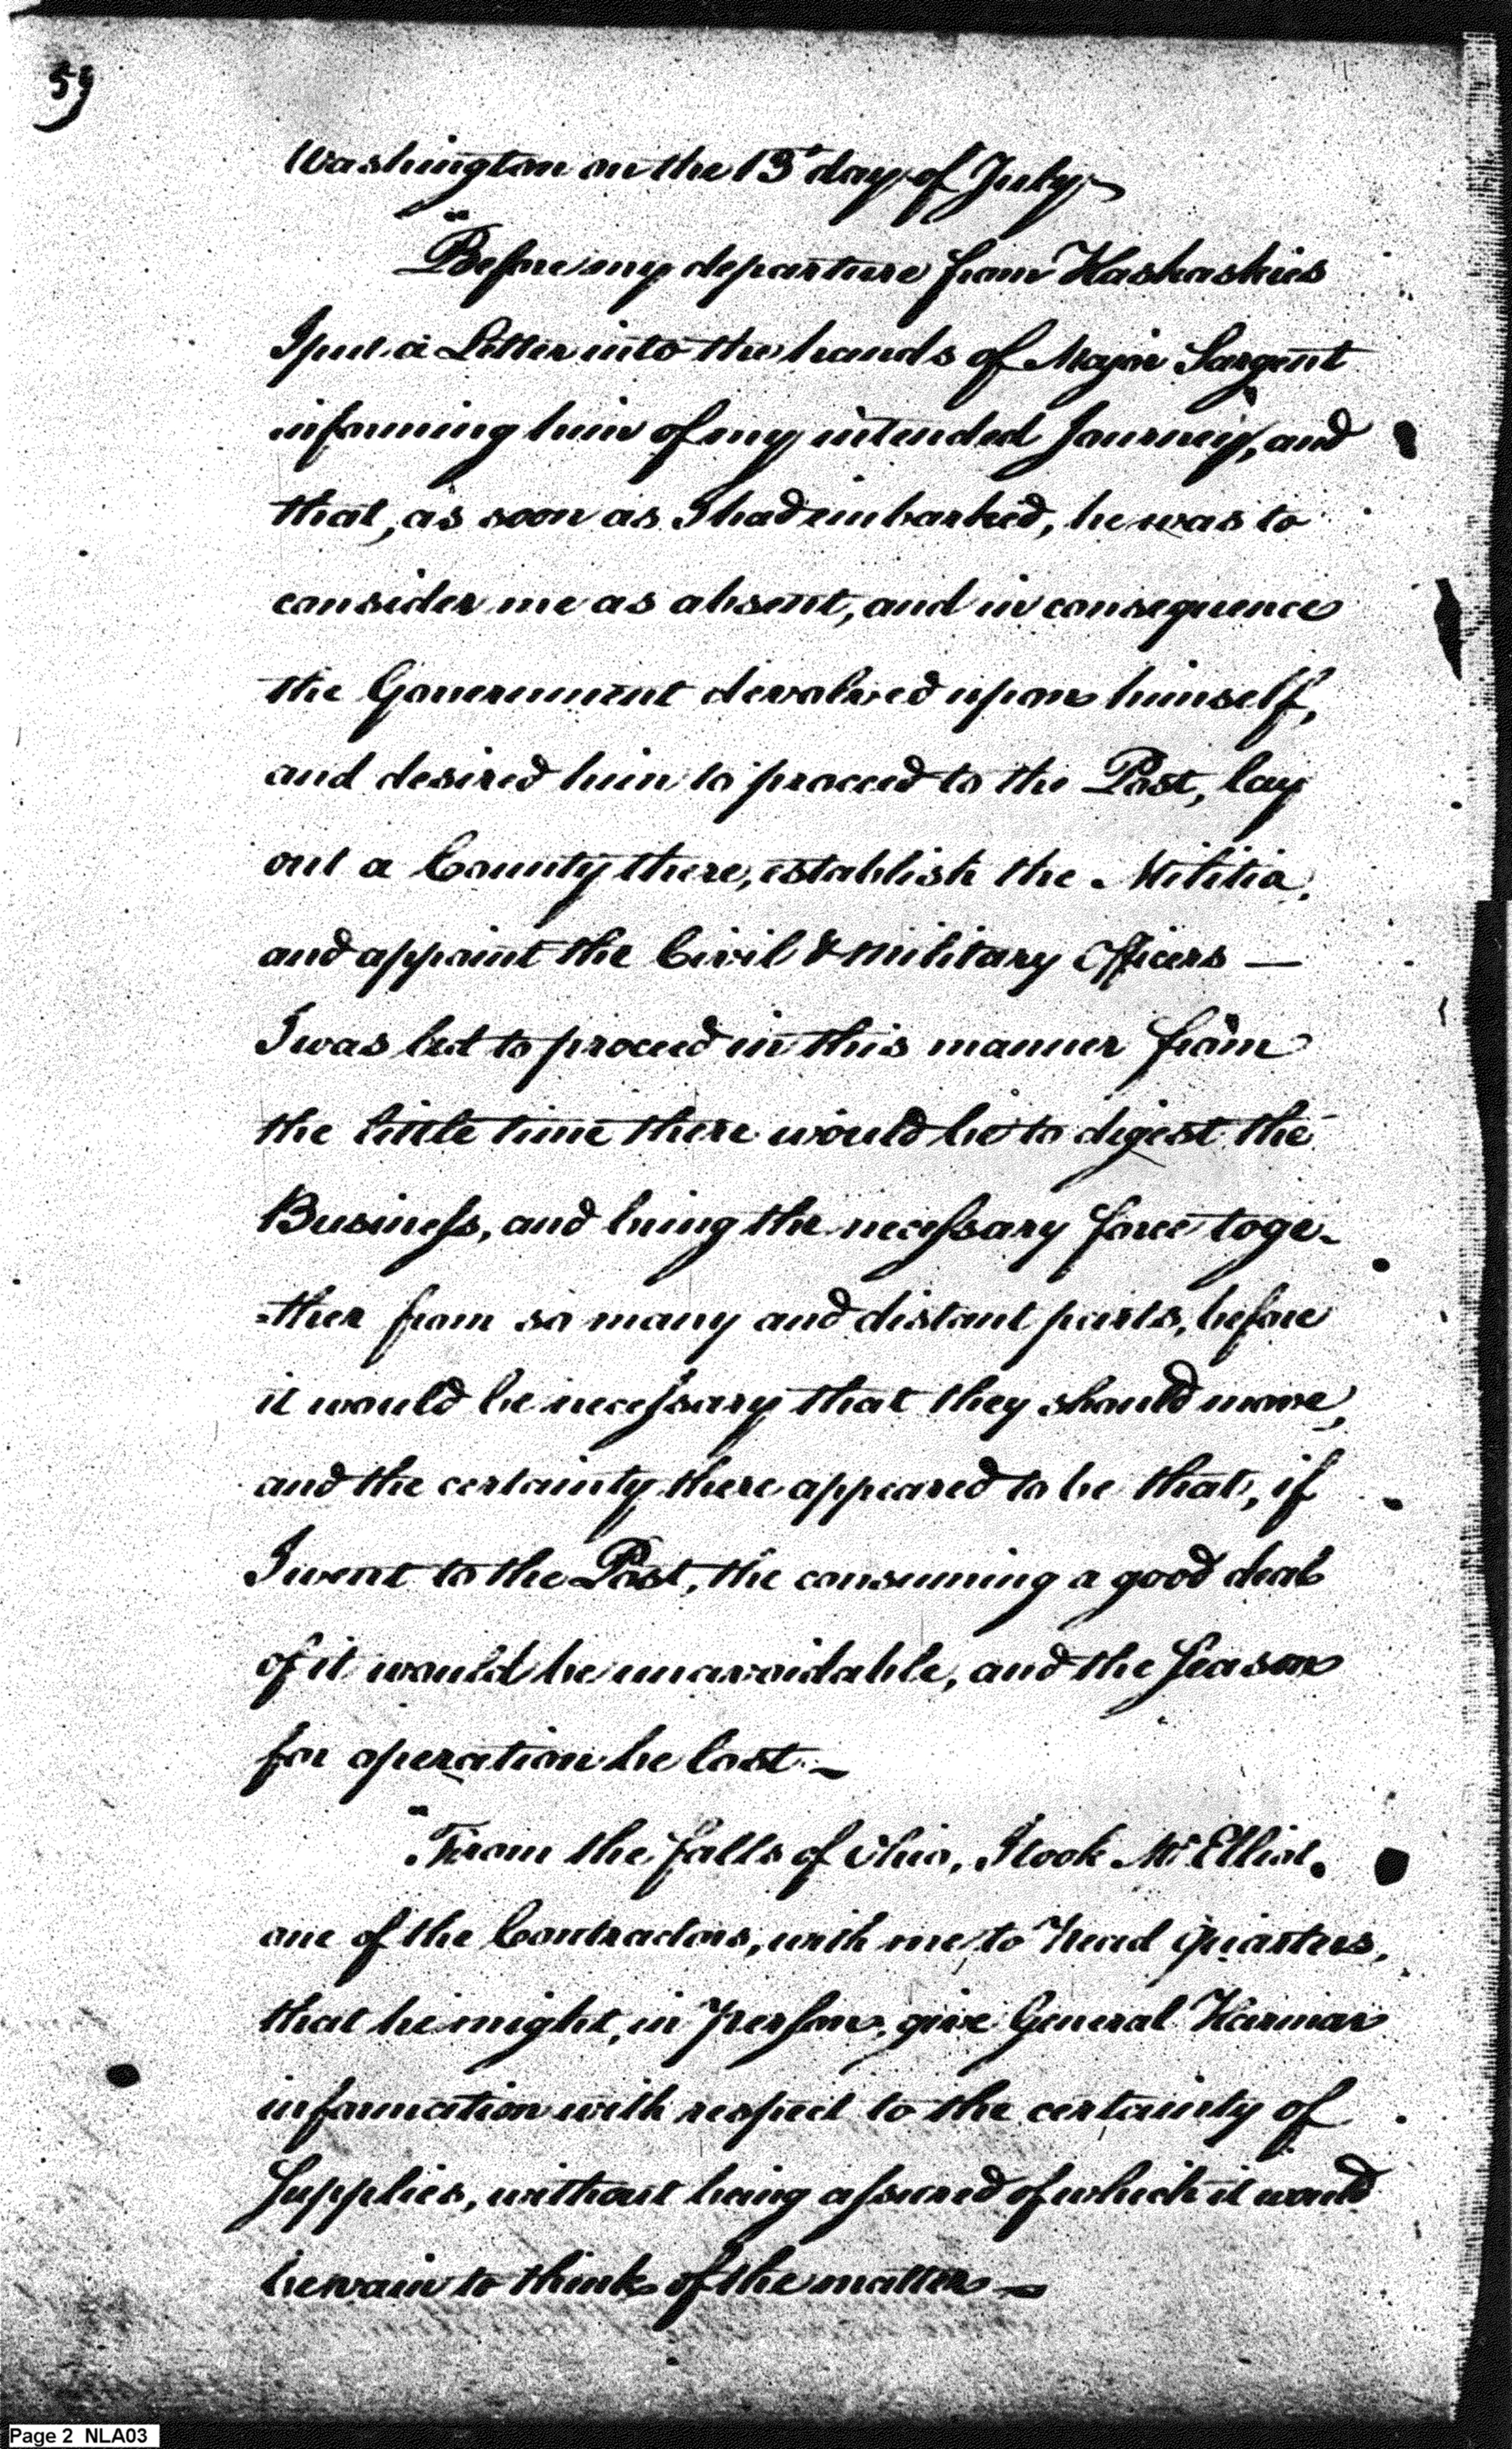 59
Washington on the 13th day of July,
"Before my departure from Kaskaskies
I put a Letter into the hands of Major Sargent
informing him of my intended Journey, and
that, as soon as I had embarked, he was to
consider me as absent, and in consequence
the Government devolved upon himself,
and desired him to proceed to the Post, lay
out a County there, establish the Militia,
and appoint the Civil & Military Officers —
I was led to proceed in this manner from
the little time there would be to digest the
Business, and bring the necessary force toge-
=ther from so many and distant parts, before
it would be necessary that they should move,
and the certainty there appeared to be that, if
I went to the Post, the consuming a good deal
of it would be unavoidable, and the Season
for operation be lost —
"From the falls of Ohio, I took Mr Elliot,
one of the Contractors, with me, to Head Quarters,
that he might, in Person, give General Harmar
information with respect to the certainty of
Supplies, without being assured of which it would
be vain to think of the matter —
Page 2 NLA03